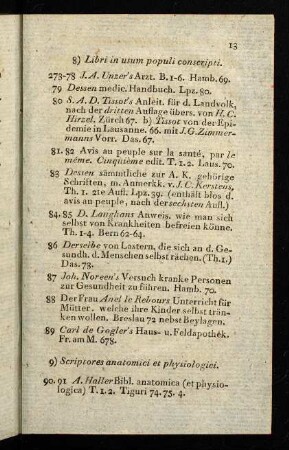 13
8) Libri in usum populi conscripti.
273-78 J. A. Unzer's Arzt. B. 1-6. Hamb. 69.
79 Dessen medic. Handbuch. Lpz. 80.
80 S. A. D. Tissot's Anleit. für d. Landvolk,
nach der dritten Auflage übers. von H. C.
Hirzel. Zürch 67. b) Tissot von der Epi-
demie in Lausanne. 66. mit J. G. Zimmer-
manns Vorr. Das. 67.
81. 82 Avis au peuple sur la santé, par le
même. Cinquième edit. T. 1. 2. Laus. 70.
83 Dessen sämmtliche zur A. K. gehörige
Schriften, m. Anmerkk. v. J. C. Kerstens,
Th. 1. 2te Aufl. Lpz. 99. (enthält blos d.
avis au peuple, nach der sechsten Aufl.)
84. 85 D. Langhans Anweis. wie man sich
selbst von Krankheiten befreien könne.
Th. 1-4. Bern 62-64.
86 Derselbe von Lastern, die sich an d. Ge-
sundh. d. Menschen selbst rächen. (Th. 1.)
Das. 73.
87 Joh. Noreen's Versuch kranke Personen
zur Gesundheit zu führen. Hamb. 70.
88 Der Frau Anel le Rebours Unterricht für
Mütter. welche ihre Kinder selbst trän-
ken wollen. Breslau 72 nebst Beylagen.
89 Carl de Gogler's Haus- u. Feldapothék.
Fr. am M. 678.
9) Scriptores anatomici et physiologici.
90. 91 A. Haller Bibl. anatomica (et physio-
logica) T. 1. 2. Tiguri 74. 75. 4.